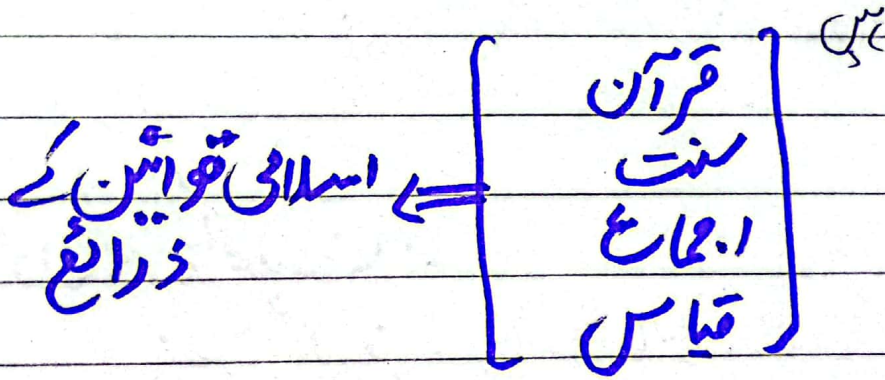 قرآن
سنت
اجماع
قیاس
⇐ اسلامی قوانین کے
ذرائع